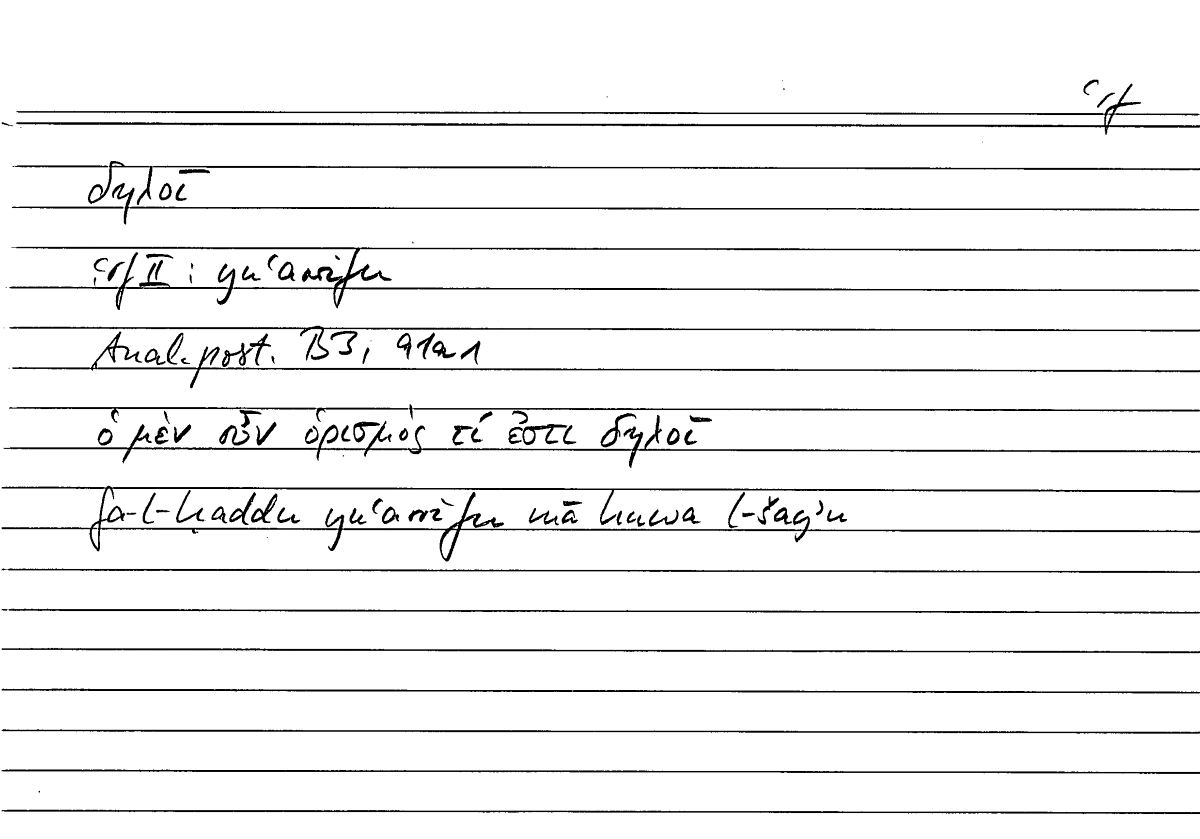 ʿrf
δηλοῖ
ʿrf II: yuʿarrifu
Anal. post. B3, 91a1
ὁ μὲν οὖν ὁρισμὸς τί ἐστι δηλοῖ
fa-l-ḥaddu yuʿarrifu mā huwa l-šayʾu